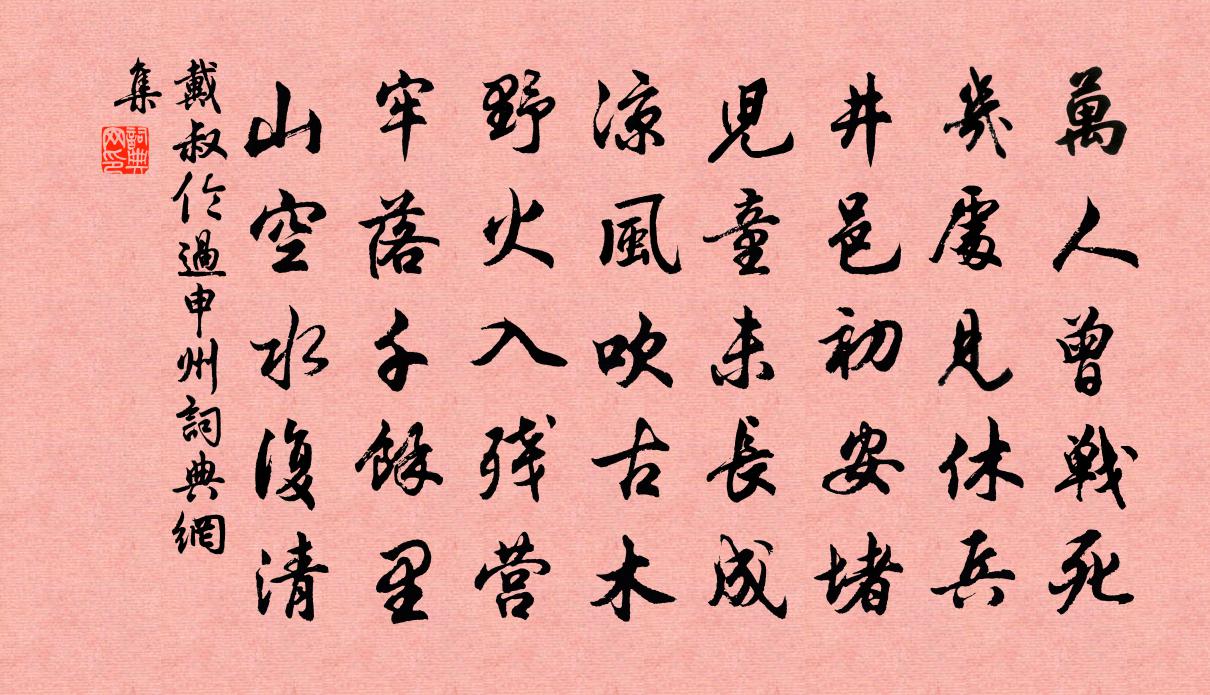 萬人曾戰死
幾處見休兵
井邑初安堵
兒童未長成
涼風吹古木
野火入殘營
牢落千餘里
山空水復清
戴叔伦過申州詞典網
集
詞典網印